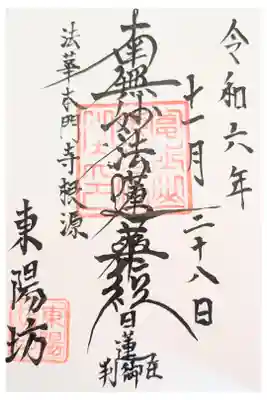 令和六年
十一月二十八日
南無妙法蓮華経
日蓮
在
御判
法華本門寺根源
東陽坊